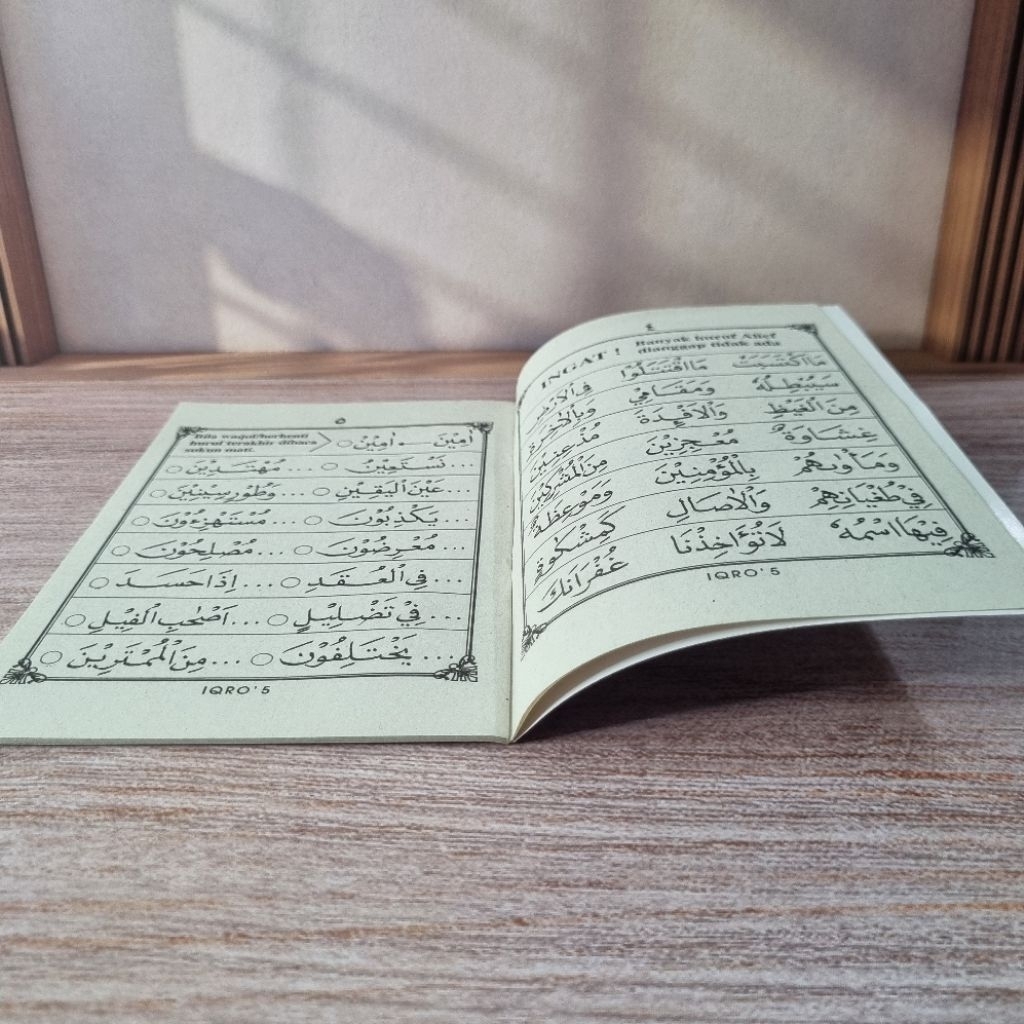 ٤
INGAT ! Banyak huruf Alief
dianggap tidak ada
مَااكْتَسَبَتْ مَااقْتَتَلُوْا فِى الْاَرْضِ
سَيُبْطِلُهٗ وَمَقَامِيْ وَبِالْاٰخِرَةِ
مِنَ الْغَيْظِ وَالْاَفْـِٕدَةَ مُذْعِنِيْنَ
غِشَاوَةٌ مُعْجِزِيْنَ مِنَ الْمُشْرِكِيْنَ
وَمَأْوٰىهُمْ بِالْمُؤْمِنِيْنَ وَمَوْعِظَةً
فِيْ طُغْيَانِهِمْ وَالْاٰصَالِ كَمِشْكٰوةٍ
فِيْهَا اسْمُهٗ لَا تُؤَاخِذْنَا غُفْرَانَكَ
IQRO'5
٥
Bila waqof/berhenti
huruf terakhir dibaca
sukun mati.
اٰمِيْنَ ـــ اٰمِيْنْ ○
... نَسْتَعِيْنُ ○ ... مُهْتَدِيْنَ ○
... عَيْنَ الْيَقِيْنِ ○ ... وَطُوْرِ سِيْنِيْنَ ○
... يَكْذِبُوْنَ ○ ... مُسْتَهْزِءُوْنَ ○
... مُعْرِضُوْنَ ○ ... مُصْلِحُوْنَ ○
... فِى الْعُقَدِ ○ ... اِذَا حَسَدَ ○
... فِيْ تَضْلِيْلٍ ○ ... اَصْحٰبِ الْفِيْلِ ○
... يَخْتَلِفُوْنَ ○ ... مِنَ الْمُمْتَرِيْنَ ○
IQRO'5